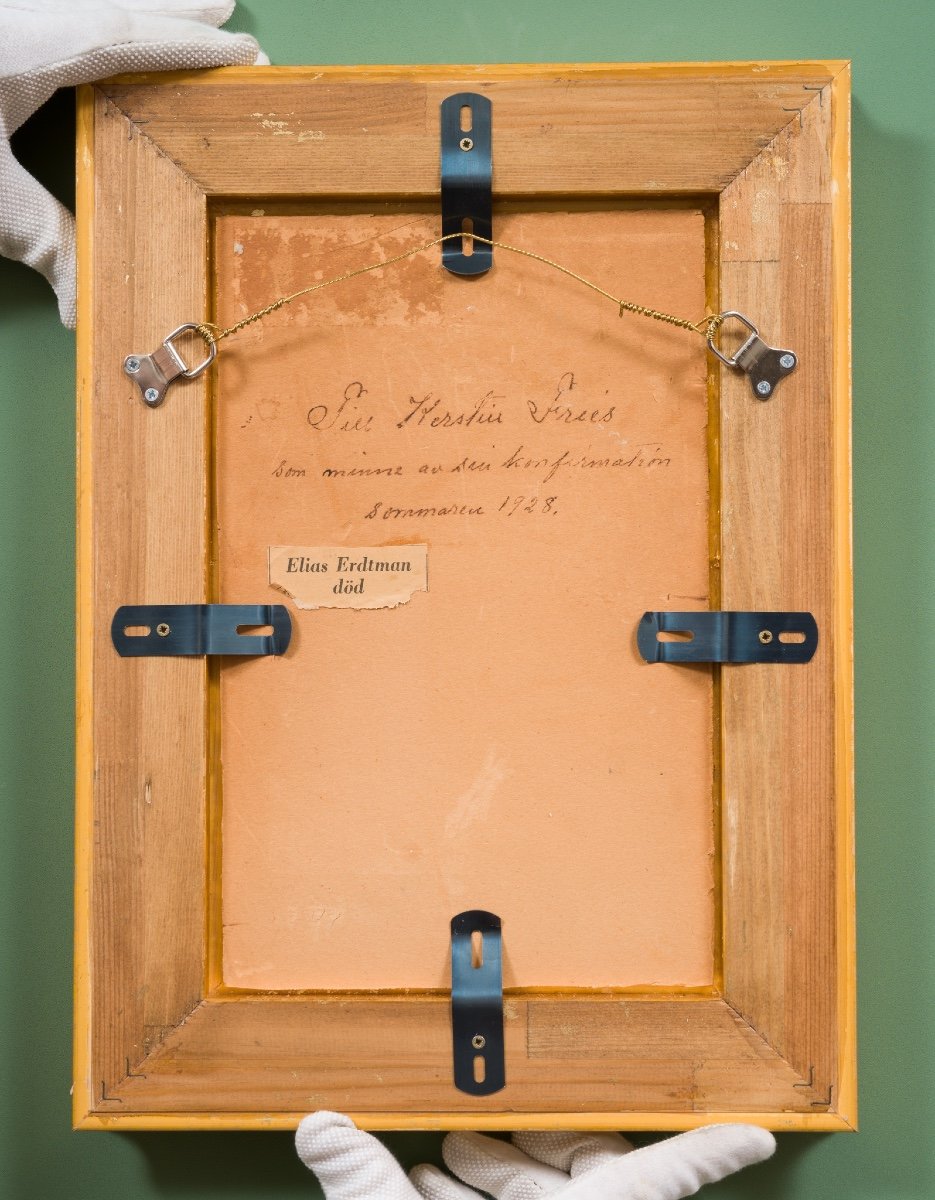 Till Kerstin Fries
som minne av sin konfirmation
sommaren 1928.
Elias Erdtman
död